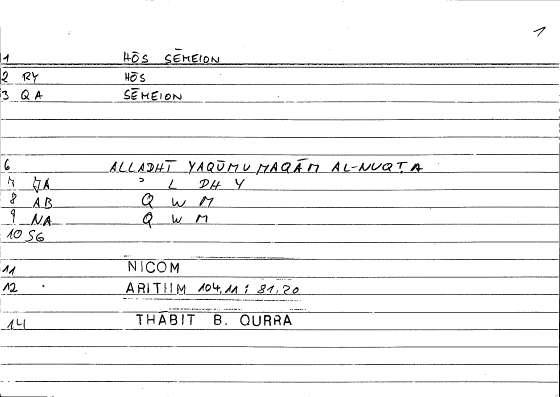 1
1 HŌS SĒMEION
2 RY HŌS
3 QA SĒMEION
6 ALLADHĪ YAQŪMU MAQĀM AL-NUQṬA
7 JA ʾ L DH Y
8 AB Q W M
9 NA Q W M
10 SG
11 NICOM
12 ARITHM 104,11 : 81,20
14 THABIT B. QURRA